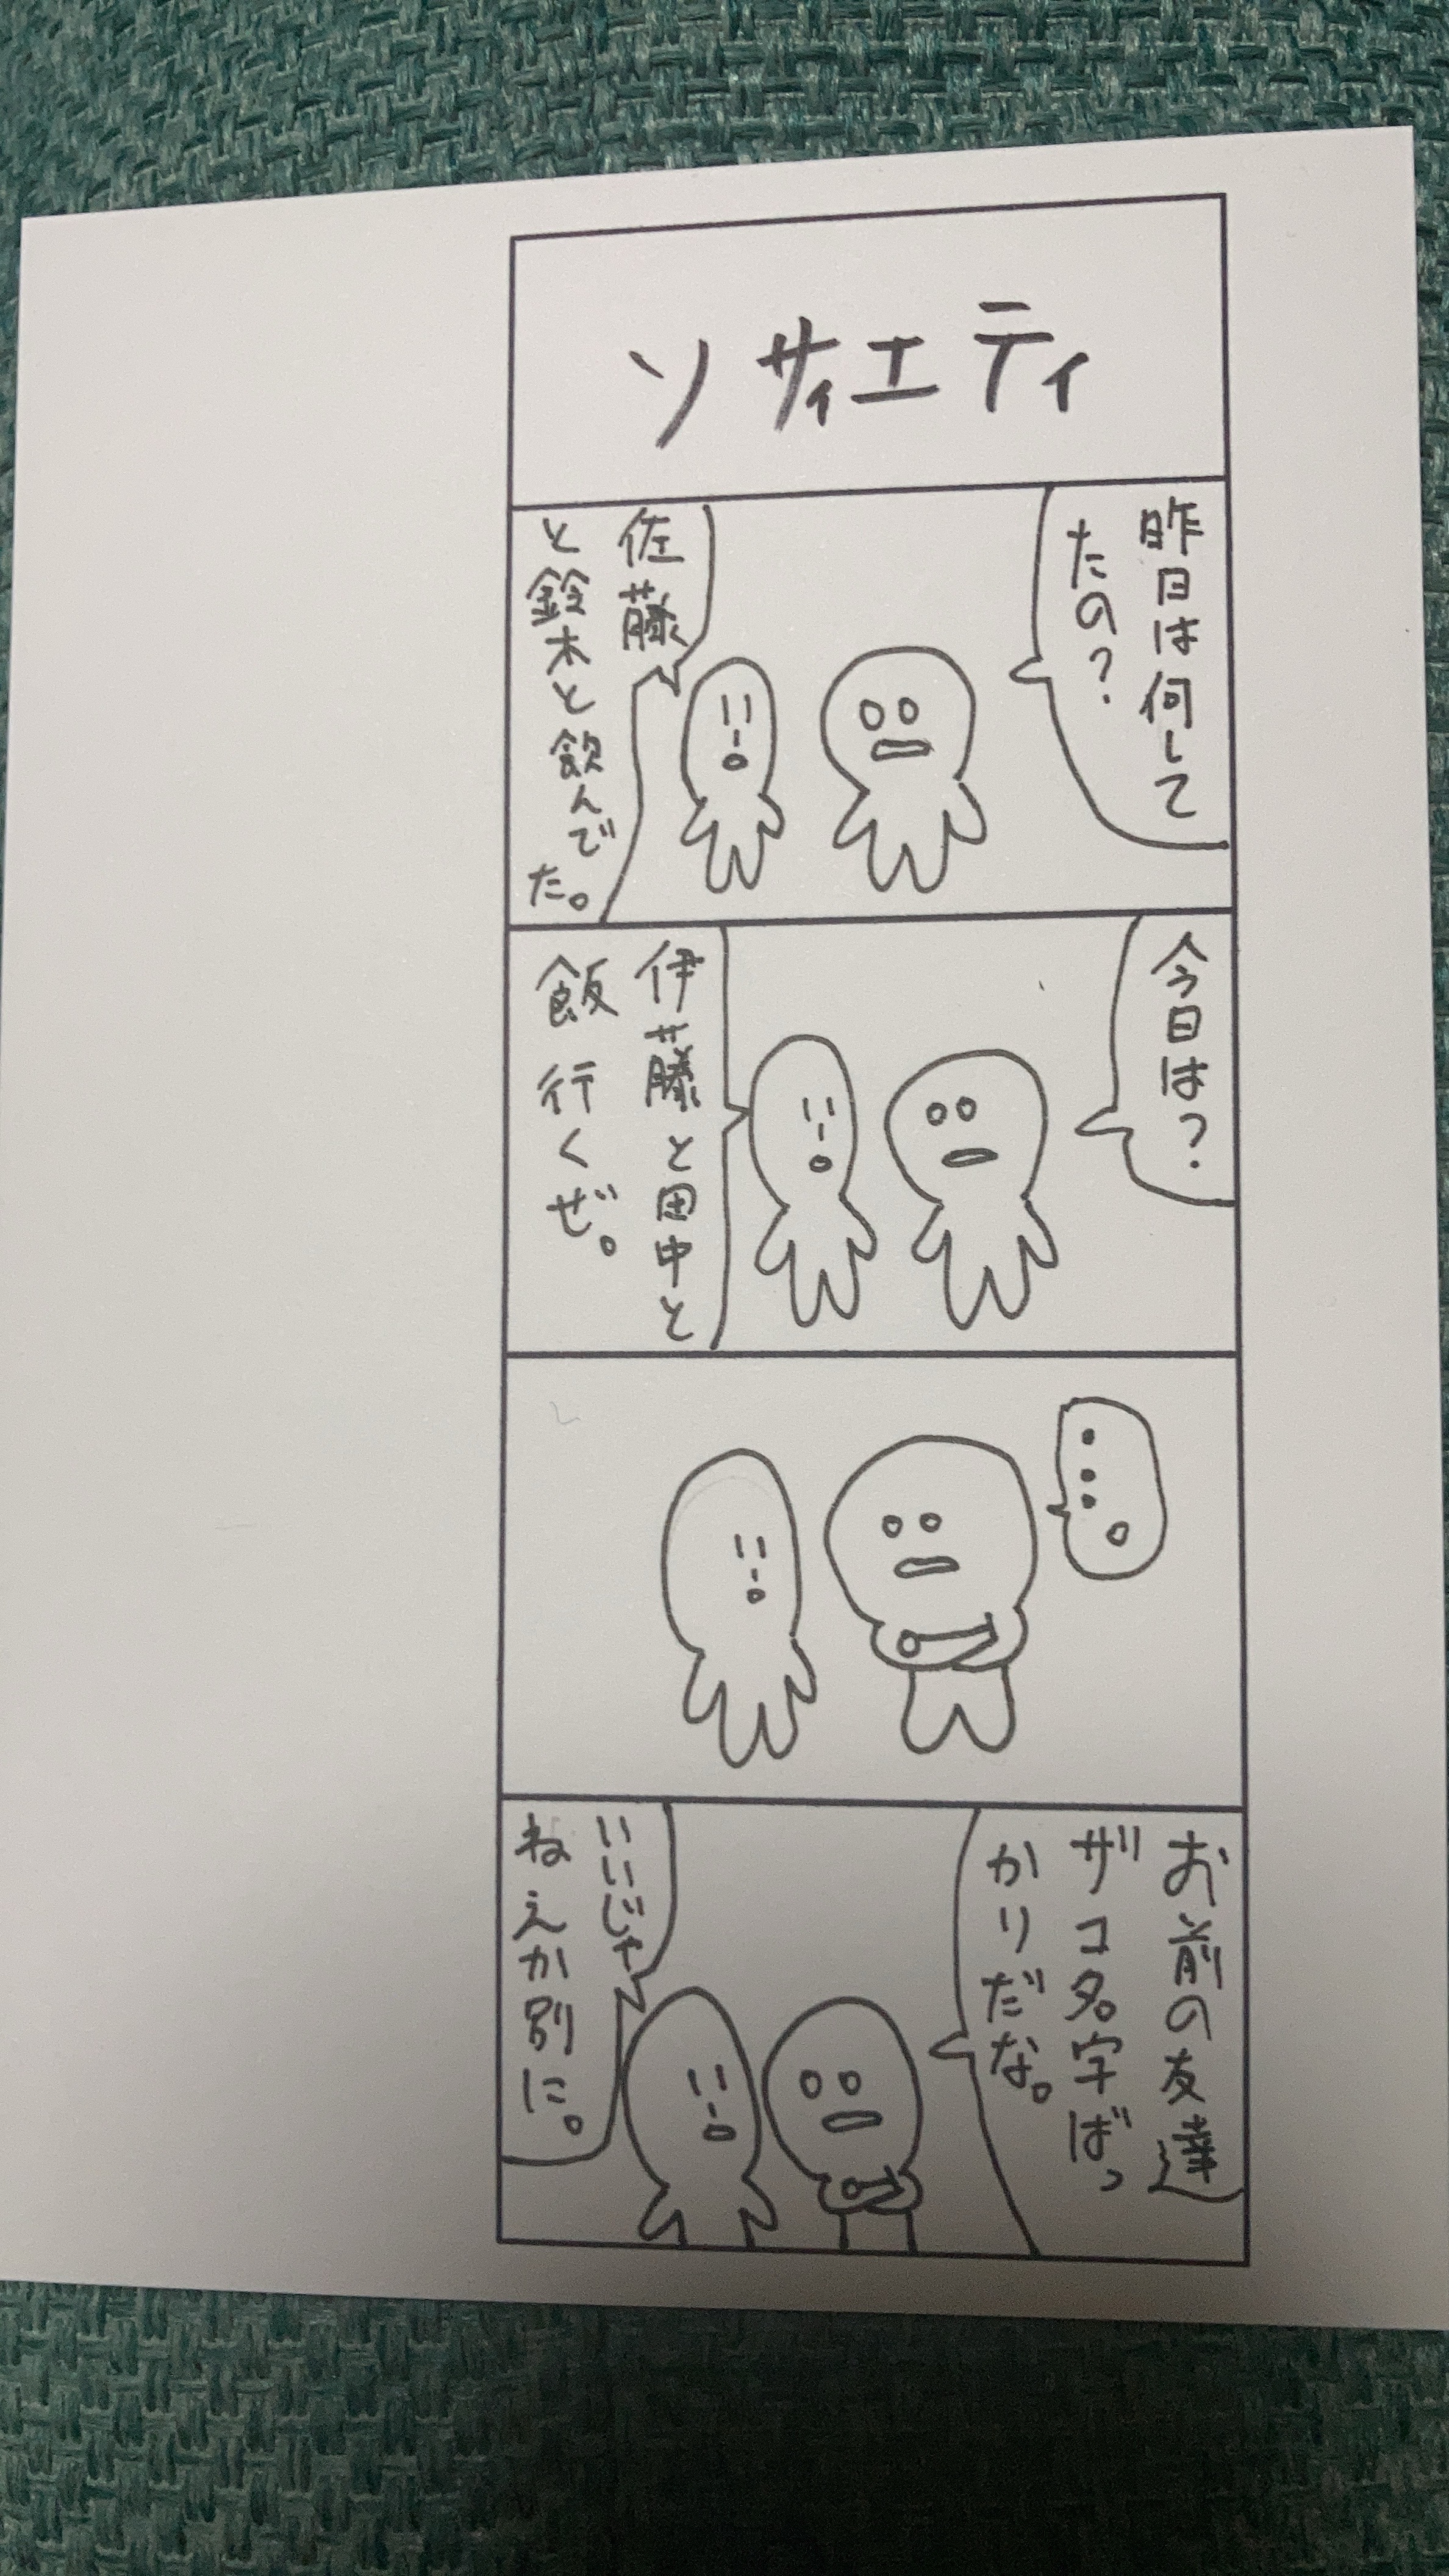 ソサイエティ
昨日は何して
たの?
佐藤
と鈴木と飲んで
た。
今日は?
伊藤と田中と
飯行くぜ。
・・・。
お前の友達
ザコ名字ばっ
かりだな。
いいじゃ
ねえか別に。